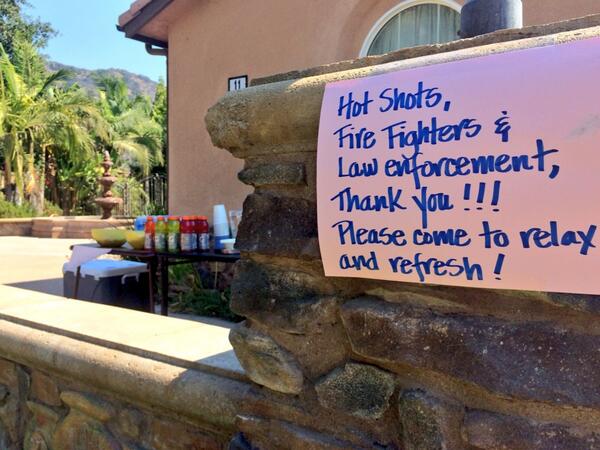 11
Hot Shots,
Fire Fighters &
Law enforcement,
Thank You!!!
Please come to relax
and refresh!